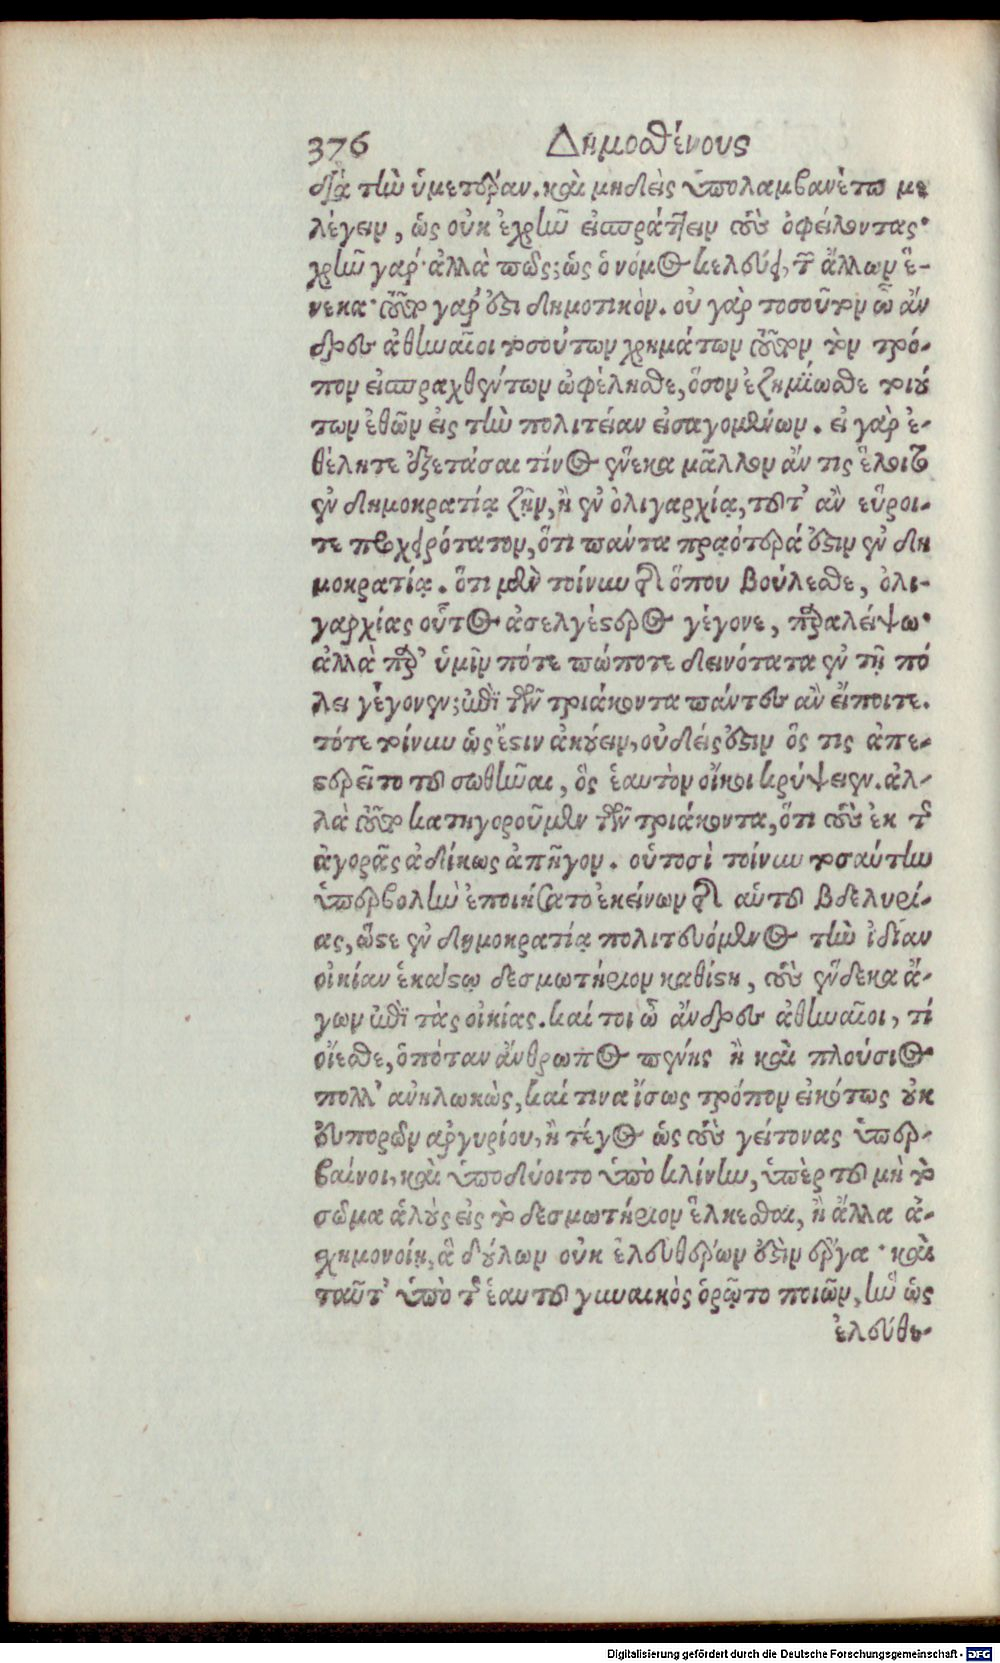 376 Δημοσθένους
διὰ τὴν ὑμετέραν. καὶ μηδεὶς ὑπολαμβανέτω με
λέγειν, ὡς οὐκ ἐχρῆν εἰσπράττειν τοὺς ὀφείλοντας·
χρῆν γάρ· ἀλλὰ πῶς; ὡς ὁ νόμος κελεύει, τῶν ἄλλων ἕ-
νεκα· τοῦτο γάρ ἐστι δημοτικὸν. οὐ γὰρ τοσοῦτον ὦ ἄν
δρες ἀθηναῖοι τοσούτων χρημάτων τοῦτον τὸν τρό-
πον εἰσπραχθέντων ὠφέλησθε, ὅσον ἐζημίωσθε τοιού
των ἐθῶν εἰς τὴν πολιτείαν εἰσαγομένων. εἰ γὰρ ἐ-
θέλητε ἐξετάσαι τίνος ἕνεκα μᾶλλον ἄν τις ἕλοιτο
ἐν δημοκρατίᾳ ζῆν, ἢ ἐν ὀλιγαρχίᾳ, τοῦτ' ἂν εὕροι-
τε προχειρότατον, ὅτι πάντα πραότερά ἐστιν ἐν δη
μοκρατίᾳ. ὅτι μὲν τοίνυν τῆς ὅπου βούλεσθε, ὀλι-
γαρχίας οὗτος ἀσελγέστερος γέγονε, παραλείψω·
ἀλλὰ παρ' ὑμῖν πότε πώποτε δεινότατα ἐν τῇ πό
λει γέγονεν; ἐπὶ τῶν τριάκοντα πάντες ἂν εἴποιτε.
τότε τοίνυν ὡς ἔστιν ἀκούειν, οὐδείς ἐστιν ὅς τις ἀπε-
στερεῖτο τοῦ σωθῆναι, ὃς ἑαυτὸν οἴκοι κρύψειεν. ἀλ-
λὰ τοῦτο κατηγοροῦμεν τῶν τριάκοντα, ὅτι τοὺς ἐκ τῆς
ἀγορᾶς ἀδίκως ἀπῆγον. οὑτοσὶ τοίνυν τοσαύτην
ὑπερβολὴν ἐποιήσατο ἐκείνων τῆς αὑτοῦ βδελυρί-
ας, ὥστε ἐν δημοκρατίᾳ πολιτευόμενος τὴν ἰδίαν
οἰκίαν ἑκάστῳ δεσμωτήριον καθίστη, τοὺς ἕνδεκα ἄ-
γων ἐπὶ τὰς οἰκίας. καί τοι ὦ ἄνδρες ἀθηναῖοι, τί
οἴεσθε, ὁπόταν ἄνθρωπος πένης ἢ καὶ πλούσιος
πολλ' ἀνηλωκὼς, καί τινα ἴσως τρόπον εἰκότως οὐκ
εὐπορῶν ἀργυρίου, ἢ τέγος ὡς τοὺς γείτονας ὑπερ-
βαίνοι, καὶ ὑποδύοιτο ὑπὸ κλίνην, ὑπὲρ τοῦ μὴ τὸ
σῶμα ἁλοὺς εἰς τὸ δεσμωτήριον ἕλκεσθαι, ἢ ἄλλα ἀ-
σχημονοίη, ἃ δούλων οὐκ ἐλευθέρων ἐστὶν ἔργα· καὶ
ταῦτ' ὑπὸ τῆς ἑαυτοῦ γυναικὸς ὁρῷτο ποιῶν, ἣν ὡς
ἐλεύθε-
Digitalisierung gefördert durch die Deutsche Forschungsgemeinschaft - DFG